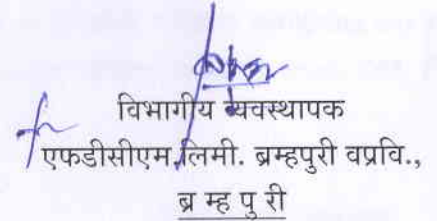 विभागीय व्यवस्थापक
एफडीसीएम लिमी. ब्रम्हपुरी वप्रवि.,
ब्र म्ह पु री